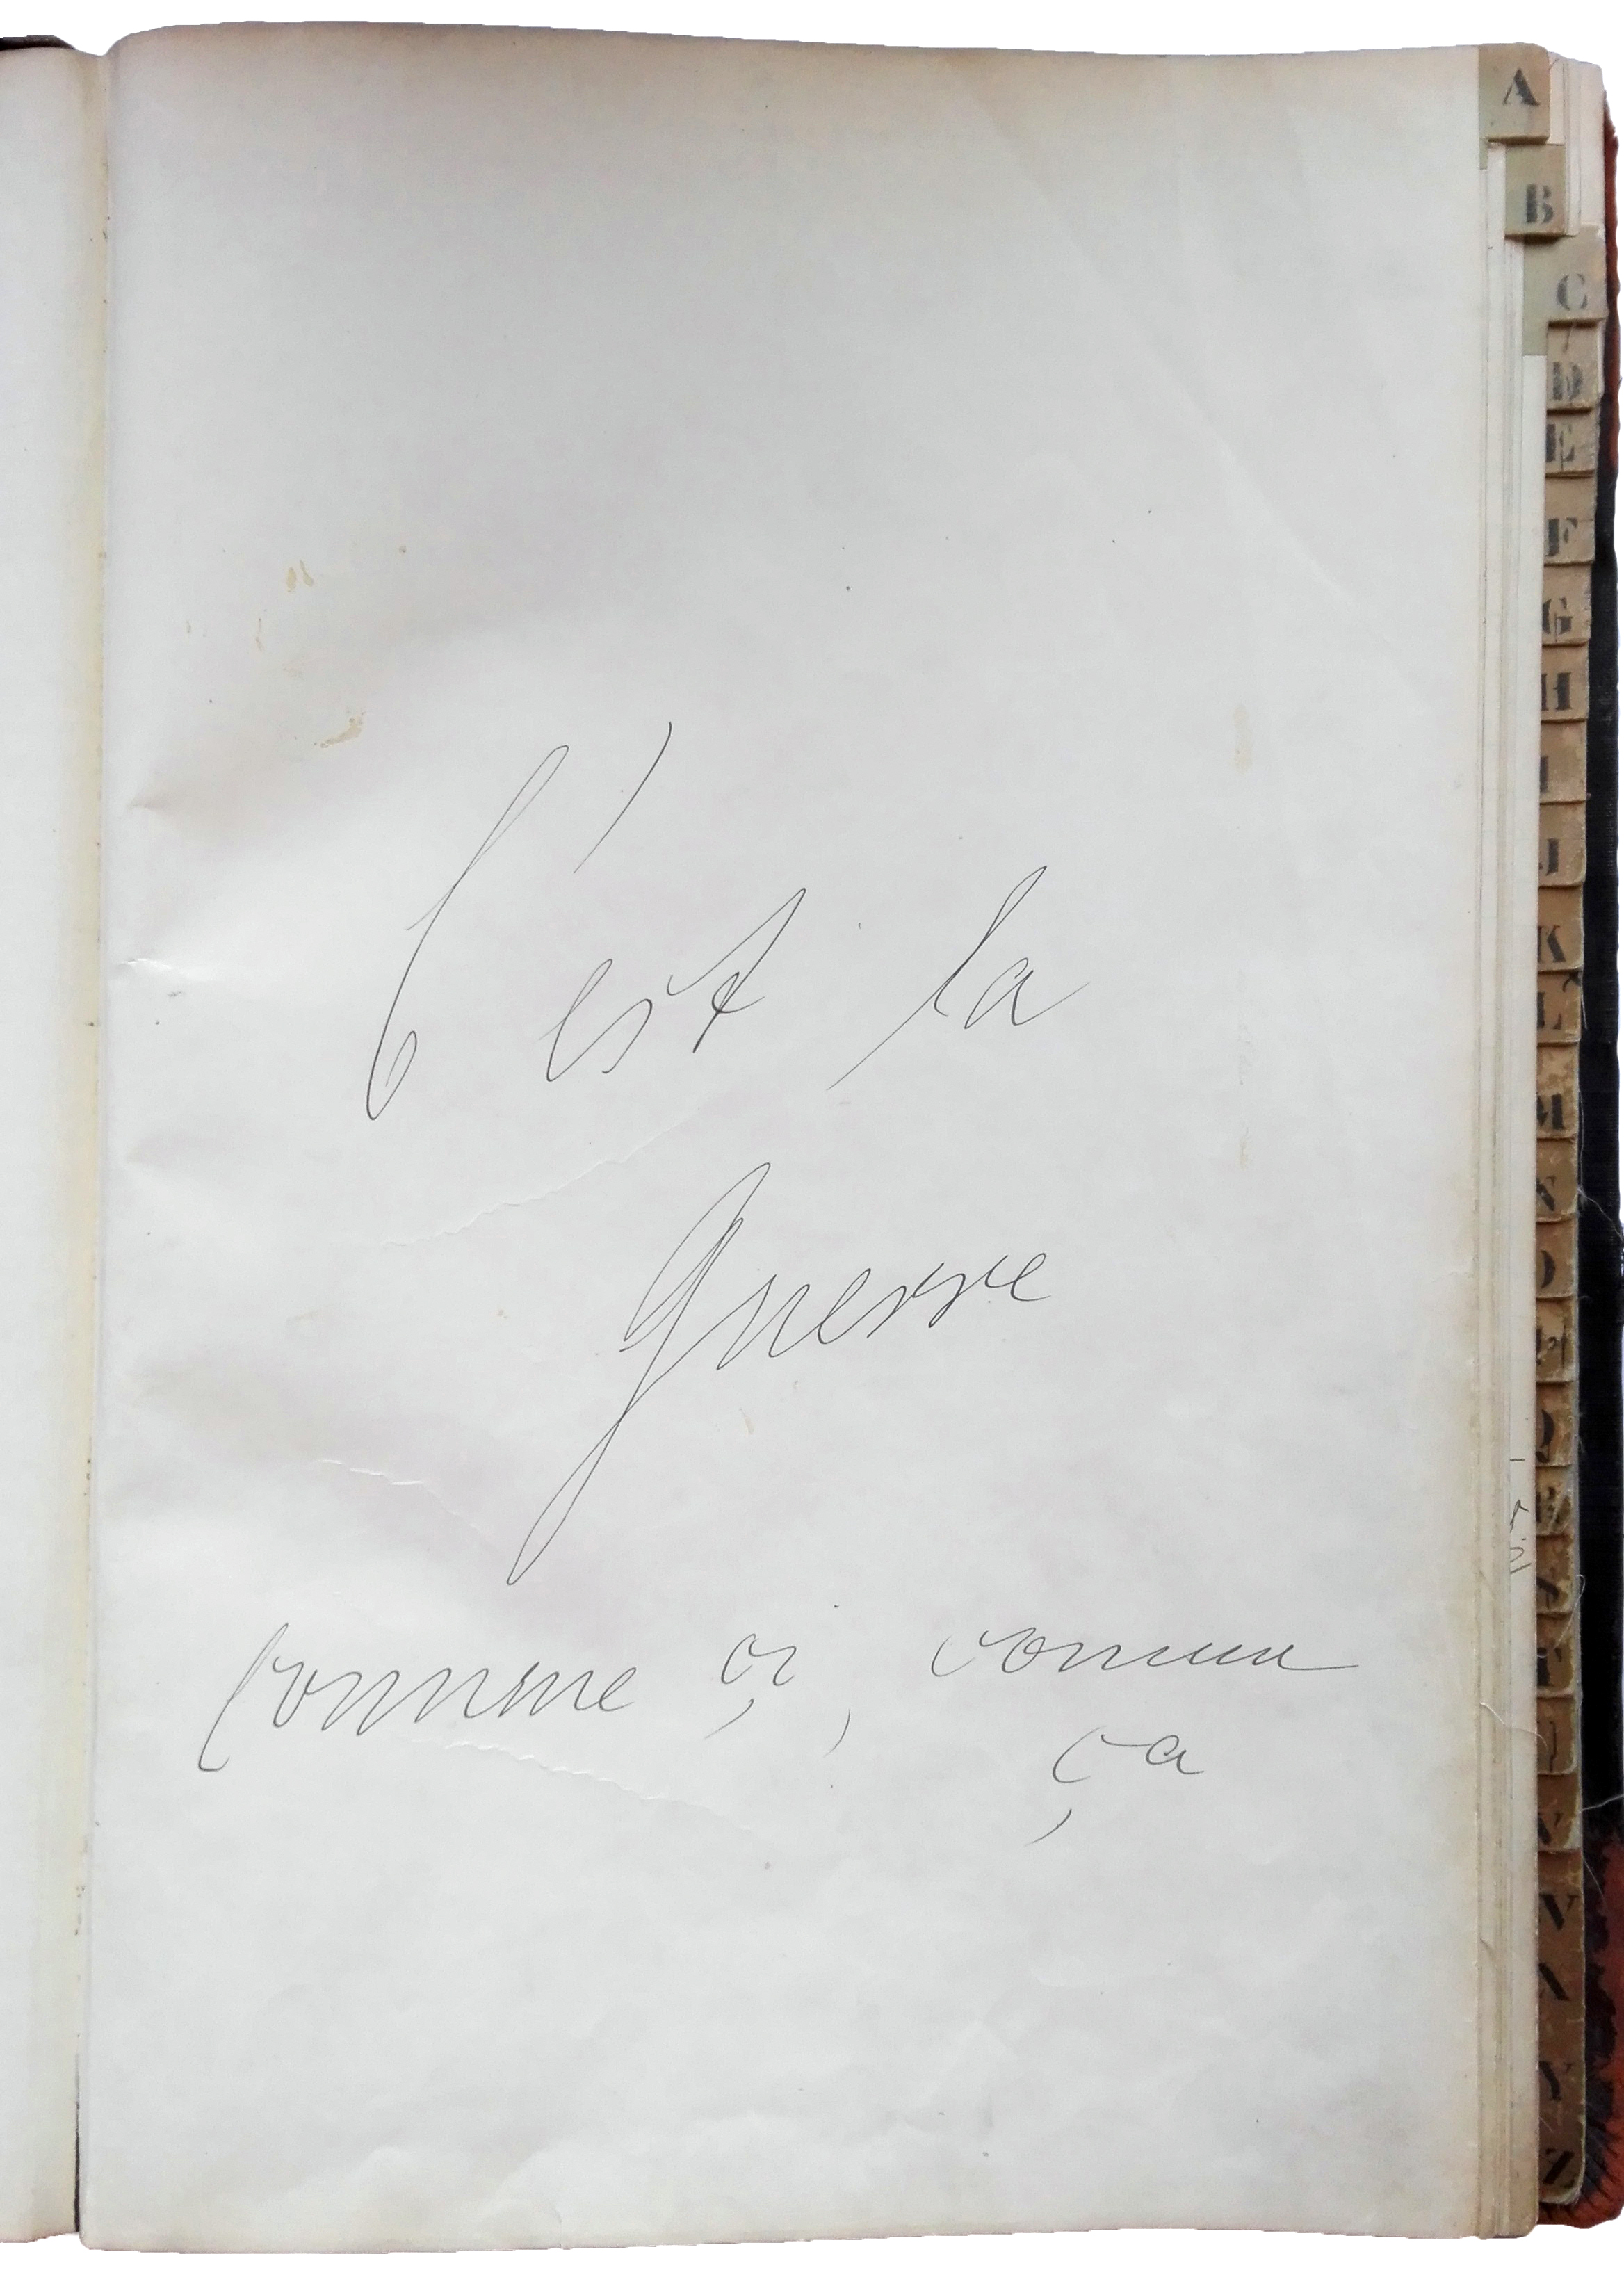 C'est la
Guerre
Comme çi, comme
ça
A
B
C
D
E
F
G
H
I
J
K
L
M
N
O
P
Q
R
S
T
U
V
X
Y
Z